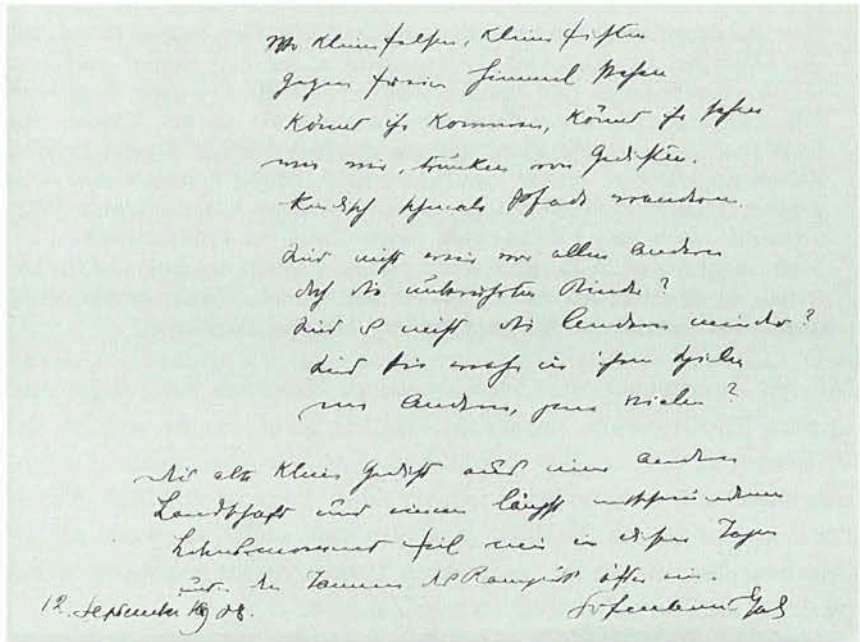 Wo kleine Felsen, kleine Fichten
gegen freien Himmel stehen
könnt ihr kommen, könnt ihr sehen
wie wir, trunken von Gedichten.
Kindisch schmale Pfade wandern
Sind nicht wir vor allen andern
doch die unberührten Kinder?
Sind es nicht die andern minder?
Sind sie wahr in ihren Spielen
andern, jene vielen?
alte kleine Gedicht aus einer andern
Landschaft und einem längst entschwundenen
Lebensmoment fiel mir in diesen Tagen
unter den Tannen des Ramgut öfter ein.
12. September 1908. Hofmannsthal